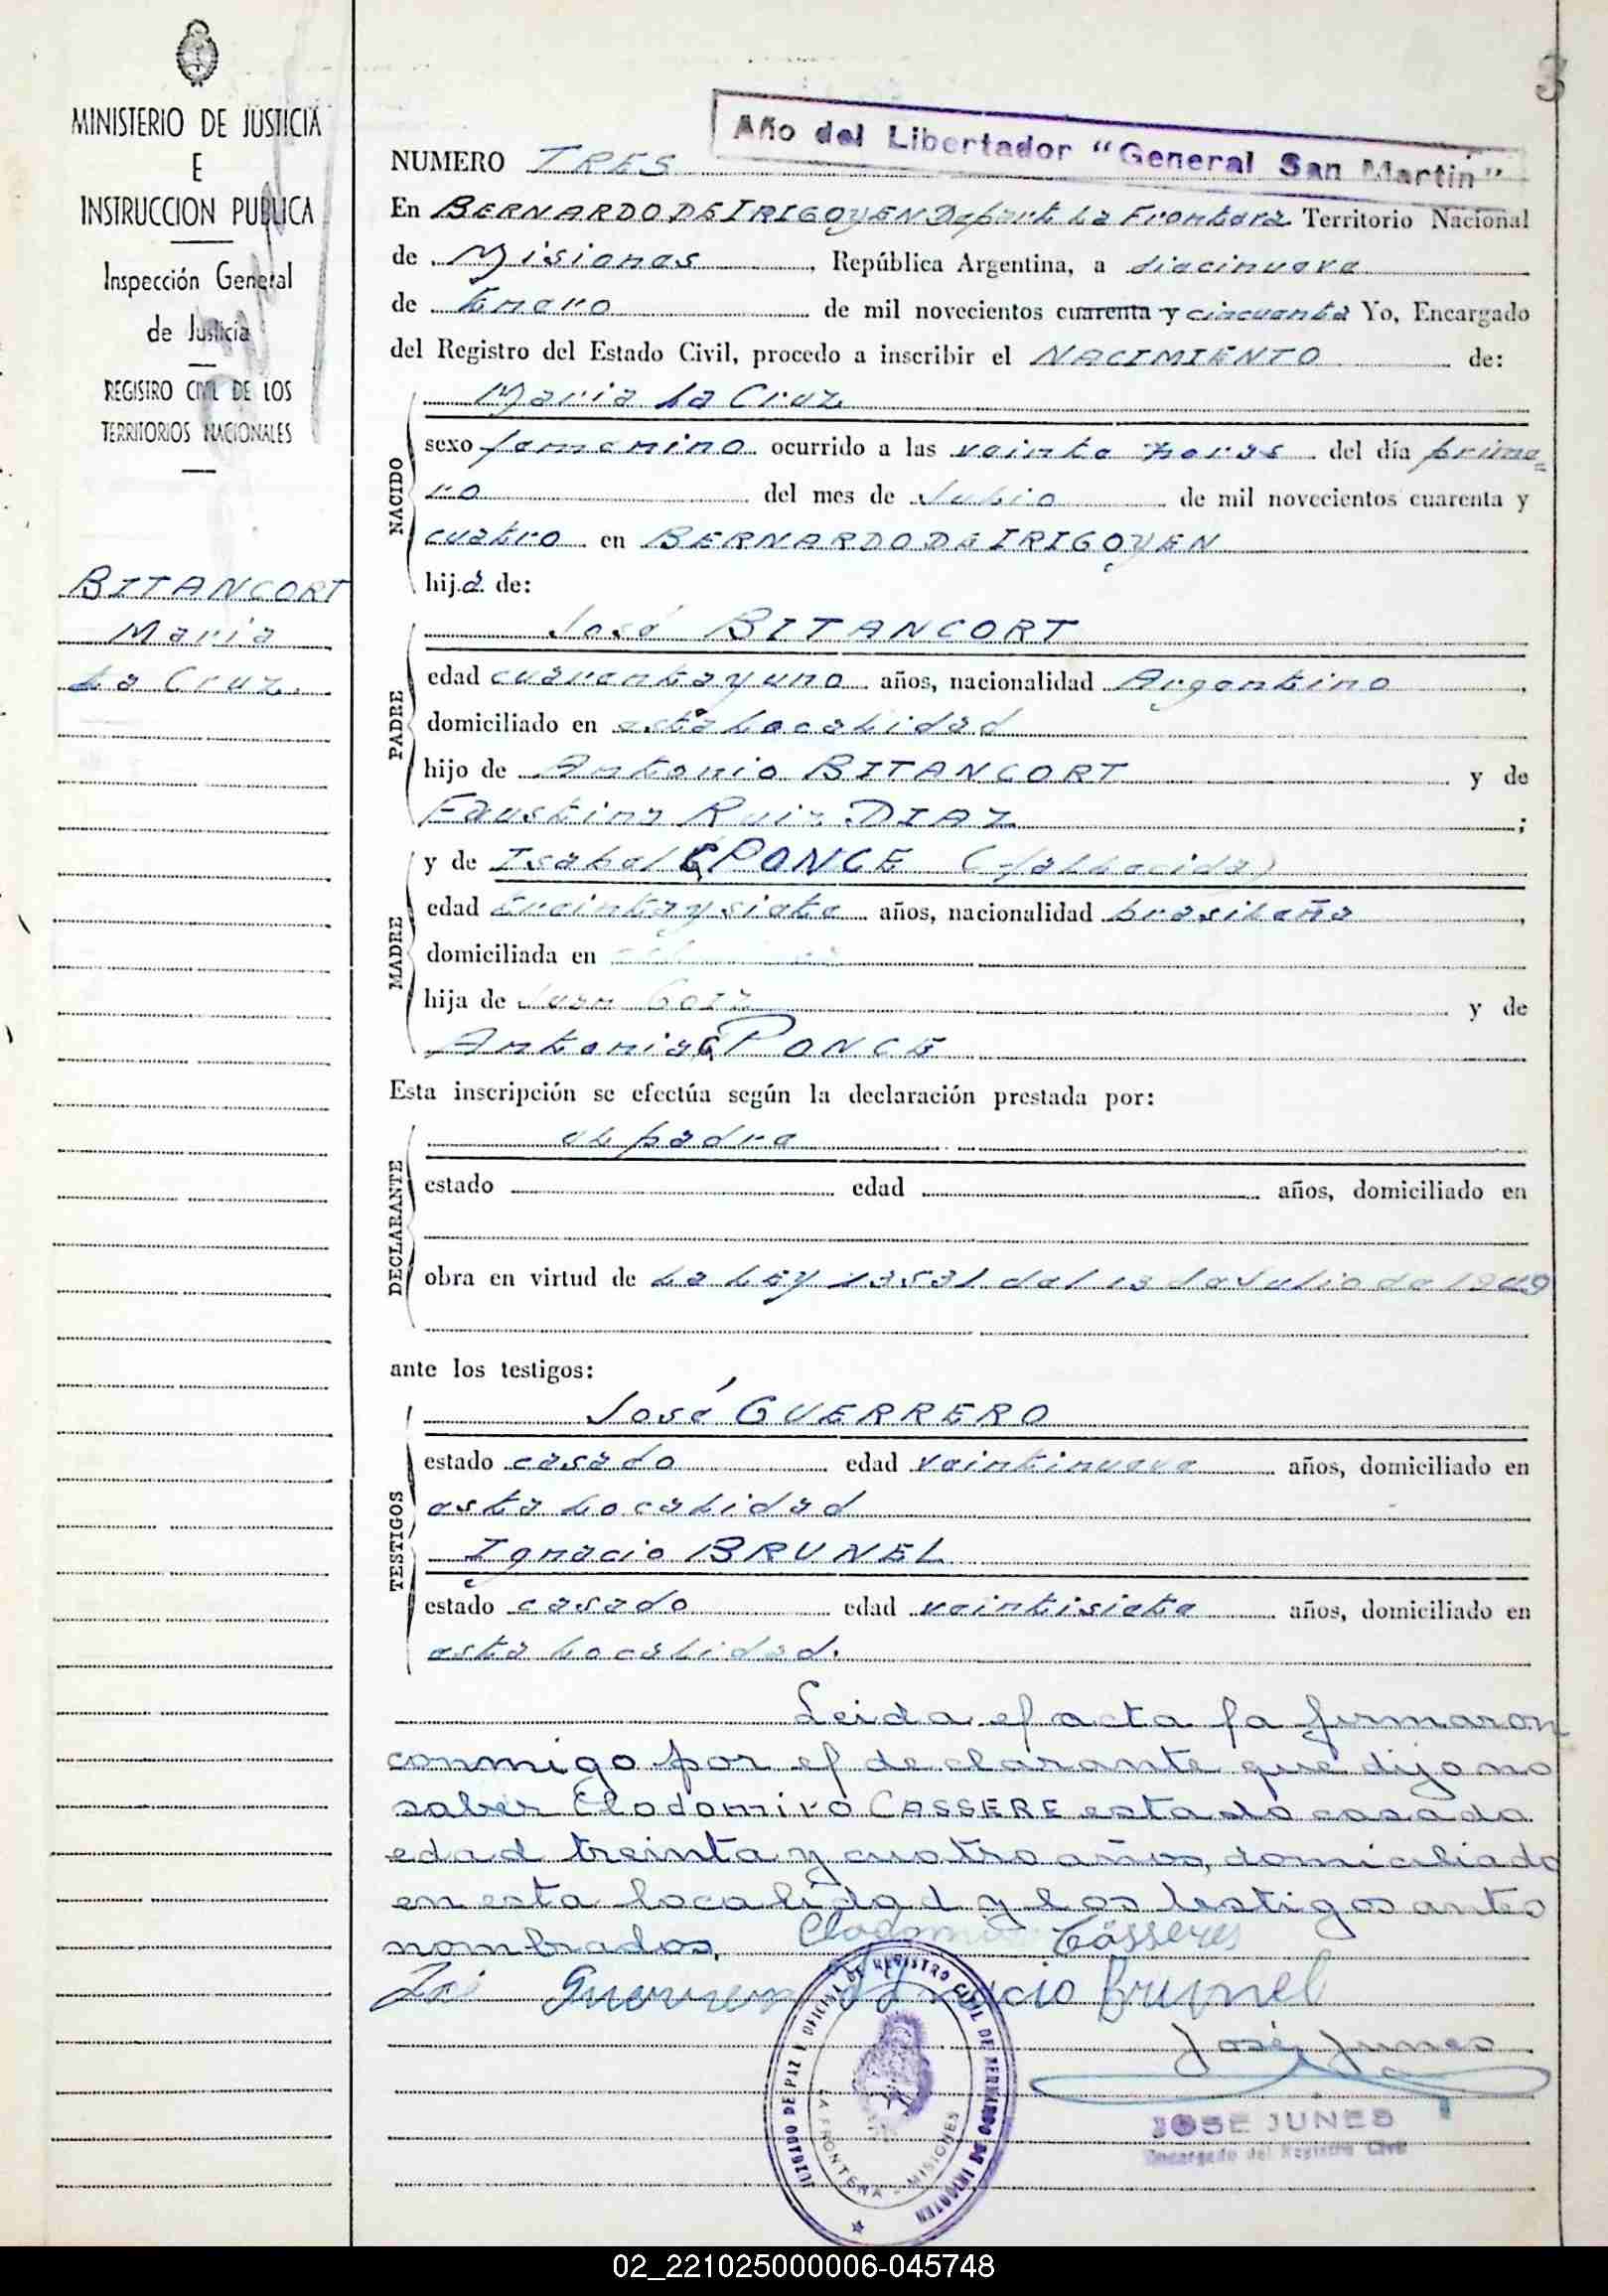 MINISTERIO DE JUSTICIA
E
INSTRUCCION PUBLICA
Inspección General
de Justicia
REGISTRO CIVIL DE LOS
TERRITORIOS NACIONALES
BITANCORT
Maria
La Cruz.
3
Año del Libertador "General San Martin"
NUMERO TRES
En BERNARDO DE IRIGOYEN Depart. La Frontera Territorio Nacional
de Misiones, República Argentina, a diecinueve
de Enero de mil novecientos cuarenta y cincuenta Yo, Encargado
del Registro del Estado Civil, procedo a inscribir el NACIMIENTO de:
NACIDO
Maria La Cruz
sexo femenino ocurrido a las veinte horas del día prime=
ro del mes de Julio de mil novecientos cuarenta y
cuatro en BERNARDO DE IRIGOYEN
hija de:
PADRE
José BITANCORT
edad cuarentayuno años, nacionalidad Argentino,
domiciliado en esta Localidad
hijo de Antonio BITANCORT y de
Faustina Ruiz DIAZ;
MADRE
y de Isabel PONCE (fallecida)
edad treintaysiete años, nacionalidad brasileña,
domiciliada en
hija de Juan y de
Antonia PONCE
Esta inscripción se efectúa según la declaración prestada por:
DECLARANTE
el padre
estado edad años, domiciliado en
obra en virtud de La Ley 13531 del 13 de Julio de 1949
ante los testigos:
TESTIGOS
José GUERRERO
estado casado edad veintinueve años, domiciliado en
esta Localidad
Ignacio BRUNEL
estado casado edad veintisiete años, domiciliado en
esta Localidad.
Leida el acta la firmaron
conmigo por el declarante que dijo no
saber Clodomiro CASSERE estado casado
edad treinta y cuatro años, domiciliado
en esta localidad y los testigos antes
nombrados,
Clodomiro Cásseres
José Guerrero Ignacio Brunel
José Junes
JOSE JUNES
Encargado del Registro Civil
JUZGADO DE PAZ Y OFICINA DE REGISTRO CIVIL DE BERNARDO DE IRIGOYEN
LA FRONTERA - MISIONES
02_221025000006-045748